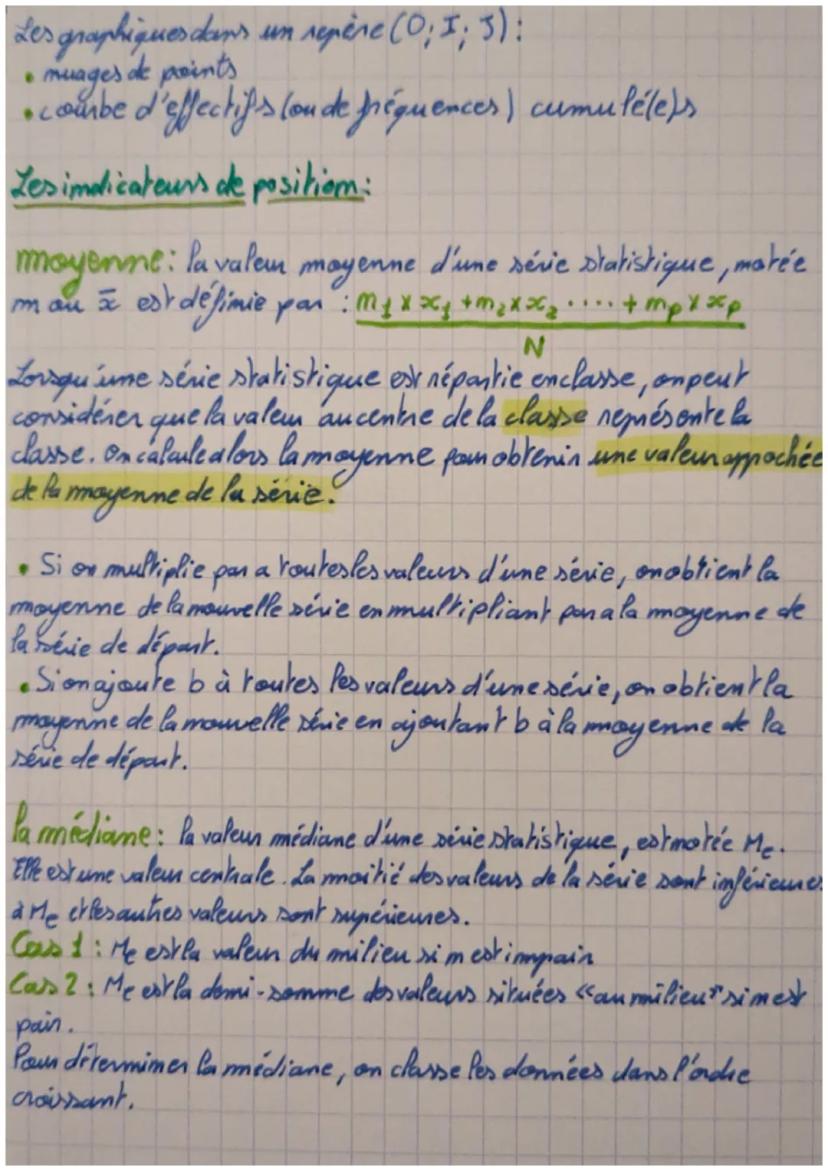 Les graphiques dans un repère (O; I; J) :
• nuages de points
• courbe d'effectifs (ou de fréquences) cumulé(e)s
Les indicateurs de position :
moyenne : la valeur moyenne d'une série statistique, notée
m ou x̄ est définie par : n₁ × x₁ + n₂ × x₂ ..... + nₚ × xₚ
N
Lorsqu'une série statistique est répartie en classe, on peut
considérer que la valeur au centre de la classe représente la
classe. On calcule alors la moyenne pour obtenir une valeur appochée
de la moyenne de la série.
• Si on multiplie par a toutes les valeurs d'une série, on obtient la
moyenne de la nouvelle série en multipliant par a la moyenne de
la série de départ.
• Si on ajoute b à toutes les valeurs d'une série, on obtient la
moyenne de la nouvelle série en ajoutant b à la moyenne de la
série de départ.
la médiane : la valeur médiane d'une série statistique, est notée Me.
Elle est une valeur centrale. La moitié des valeurs de la série sont inférieures
à Me et les autres valeurs sont supérieures.
Cas 1 : Me est la valeur du milieu si n est impair
Cas 2 : Me est la demi-somme des valeurs situées «au milieu» si n est
pair.
Pour déterminer la médiane, on classe les données dans l'ordre
croissant.